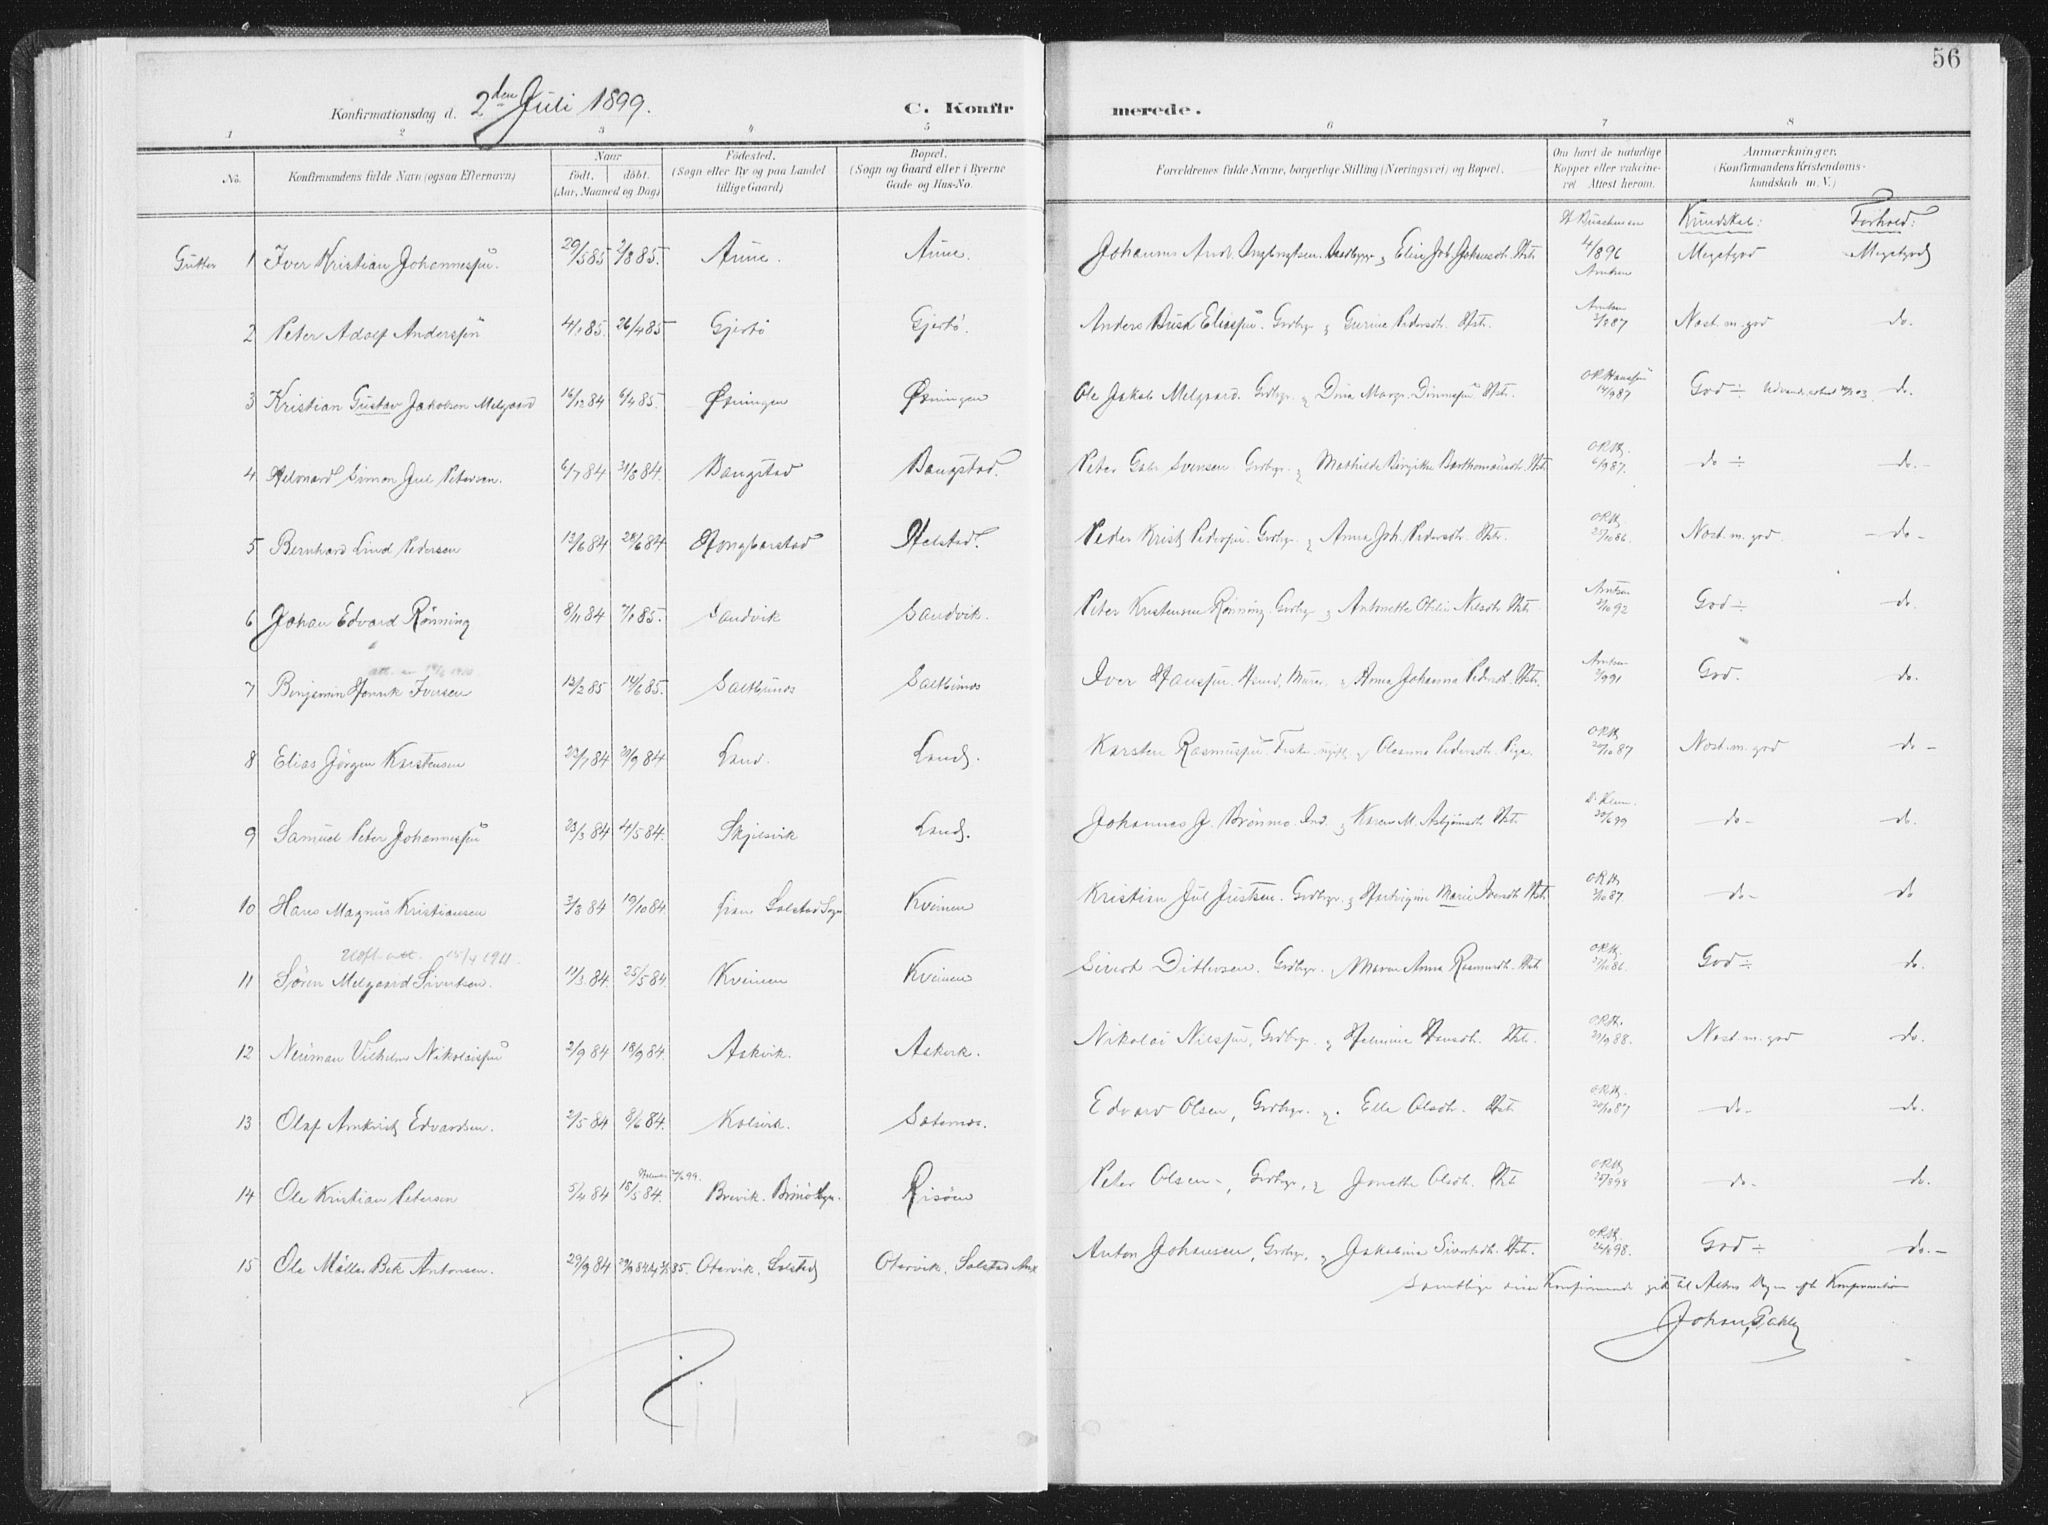 56
Konfirmationsdag d. 2den Juli 1899. C. Konfirmerede.
1 2 3 4 5 6 7 8
No. Konfirmandens fulde Navn (ogsaa Efternavn) Naar født. døbt. (Aar, Maaned og Dag) Fødested. (Sogn eller By og paa Landet tillige Gaard) Bopæl. (Sogn og Gaard eller i Byerne Gade og Hus-No. Forældrenes fulde Navne, borgerlige Stilling (Næringsvei) og Bopæl. Om havt de naturlige Kopper eller vakcineret Attest herom. Anmærkninger. (Konfirmandens Kristendomskundskab m. V.)
Kundskab: Forhold:
Gutter 1 Iver Kristian Johannessen. 29/5 85 2/8 85. Aune. Aune. Johannes And. Elise Joh. 4/896 Arntsen Megetgod Megetgod
2 Peter Adolf Anderssen 4/1 85. 26/4 85 Gjerbø Gjerbø. Anders Busk Eliassen. Grdbgr. & Gurine Pedersdtr. Hstr. Arntsen 87 Nost. m. god do.
3 Kristian Gustav Jakobsen Melgaard 16/12 84 6/4 85. Øksningen Øksningen Ole Jakob Melgaard. Grdbgr. & Dina Margr. Hstr. O R Hanssen 14/9 87 God ÷ do.
4 Helmard Simon Jul Petersen. 6/7 84 31/8 84. Bangstad Bangstad. Peter Gabr. Svensen. Grdbgr. & Mathilde Birgitte Hstr. O.R.H. 6/9 87. do ÷ do.
5 Bernhard Lind Pedersen 13/6 84 28/6 84 Helstad. Peder Krist. Pederssen. Grdbgr. & Anna Joh. Pedersdtr. Hstr. O.R.H. 25/10 86. Nost. m. god. do
6 Johan Edvard Rönning 8/11 84 7/1 85. Sandvik Sandvik. Peter Kristensen Rönning. Grdbgr. & Antonette Nilsdtr. Hstr. Arntsen 92 God ÷ do.
7 Benjamin Henrik Iversen 13/2 85 14/6 85. Iver Hanssen. & Anna Johanna Pedersdt. Hstr. Arntsen 91 God. do.
8 Elias Jörgen Karstensen 23/7 84 21/9 84 Land. Land. Karsten Rasmussen. ugift & Olesanna Pedersdtr. Pige. O.R.H. 20/10 87 Nost. m. god do
9 Samuel Peter Johannessen 23/3 84 4/5 84. Skjelsvik Land. Johannes J. Brönmo. Ind. & Karen M. Hstr. 99 do do.
10 Hans Magnus Kristiansen 3/8 84 19/10 84. Solstad Sogn Kveinen Kristian Jul Justsen. Grdbgr. & Marie Hstr. O.R.H. 87. do do
Udfl. att. 15/4 1911.
11 Sören Melgaard Sivertsen. 11/3 84. 25/5 84. Kveinen Kveinen Sivert Ditlevsen. Grdbgr. & Maren Anna Rasmusdt. Hstr. O.R.H. 86. God ÷ do.
12 Neuman Vilhelm Nikolaissen 2/9 84 18/9 84. Askvik. Askvik. Nikolai Nilssen, Grdbgr. & Hansdt. Hstr. O.R.H. 21/9 88. Nost. m. god do.
13 Olaf Arnkvist Edvardsen. 2/5 84 8/6 84. Kolsvik. Edvard Olsen, Grdbgr. & Elle Olsdtr. Hstr. O.R.H. 20/10 87 do do.
14 Ole Kristian Petersen 5/4 84 18/5 84. Brevik. Risöen Peter Olsen, Grdbgr. & Jonette Olsdt. Hstr. O.R.H. 98 do do.
15 Ole Möller Bek Antonsen. 29/9 84 85. Otervik. Solstad Otervik. Solstad Anton Johansen, Grdbgr. & Jakobina Sivertsdt. Hstr. O.R.H. 98. God ÷ do.
Samtlige disse Konfirmander gik til Alters Dagen eft. Konfirmation